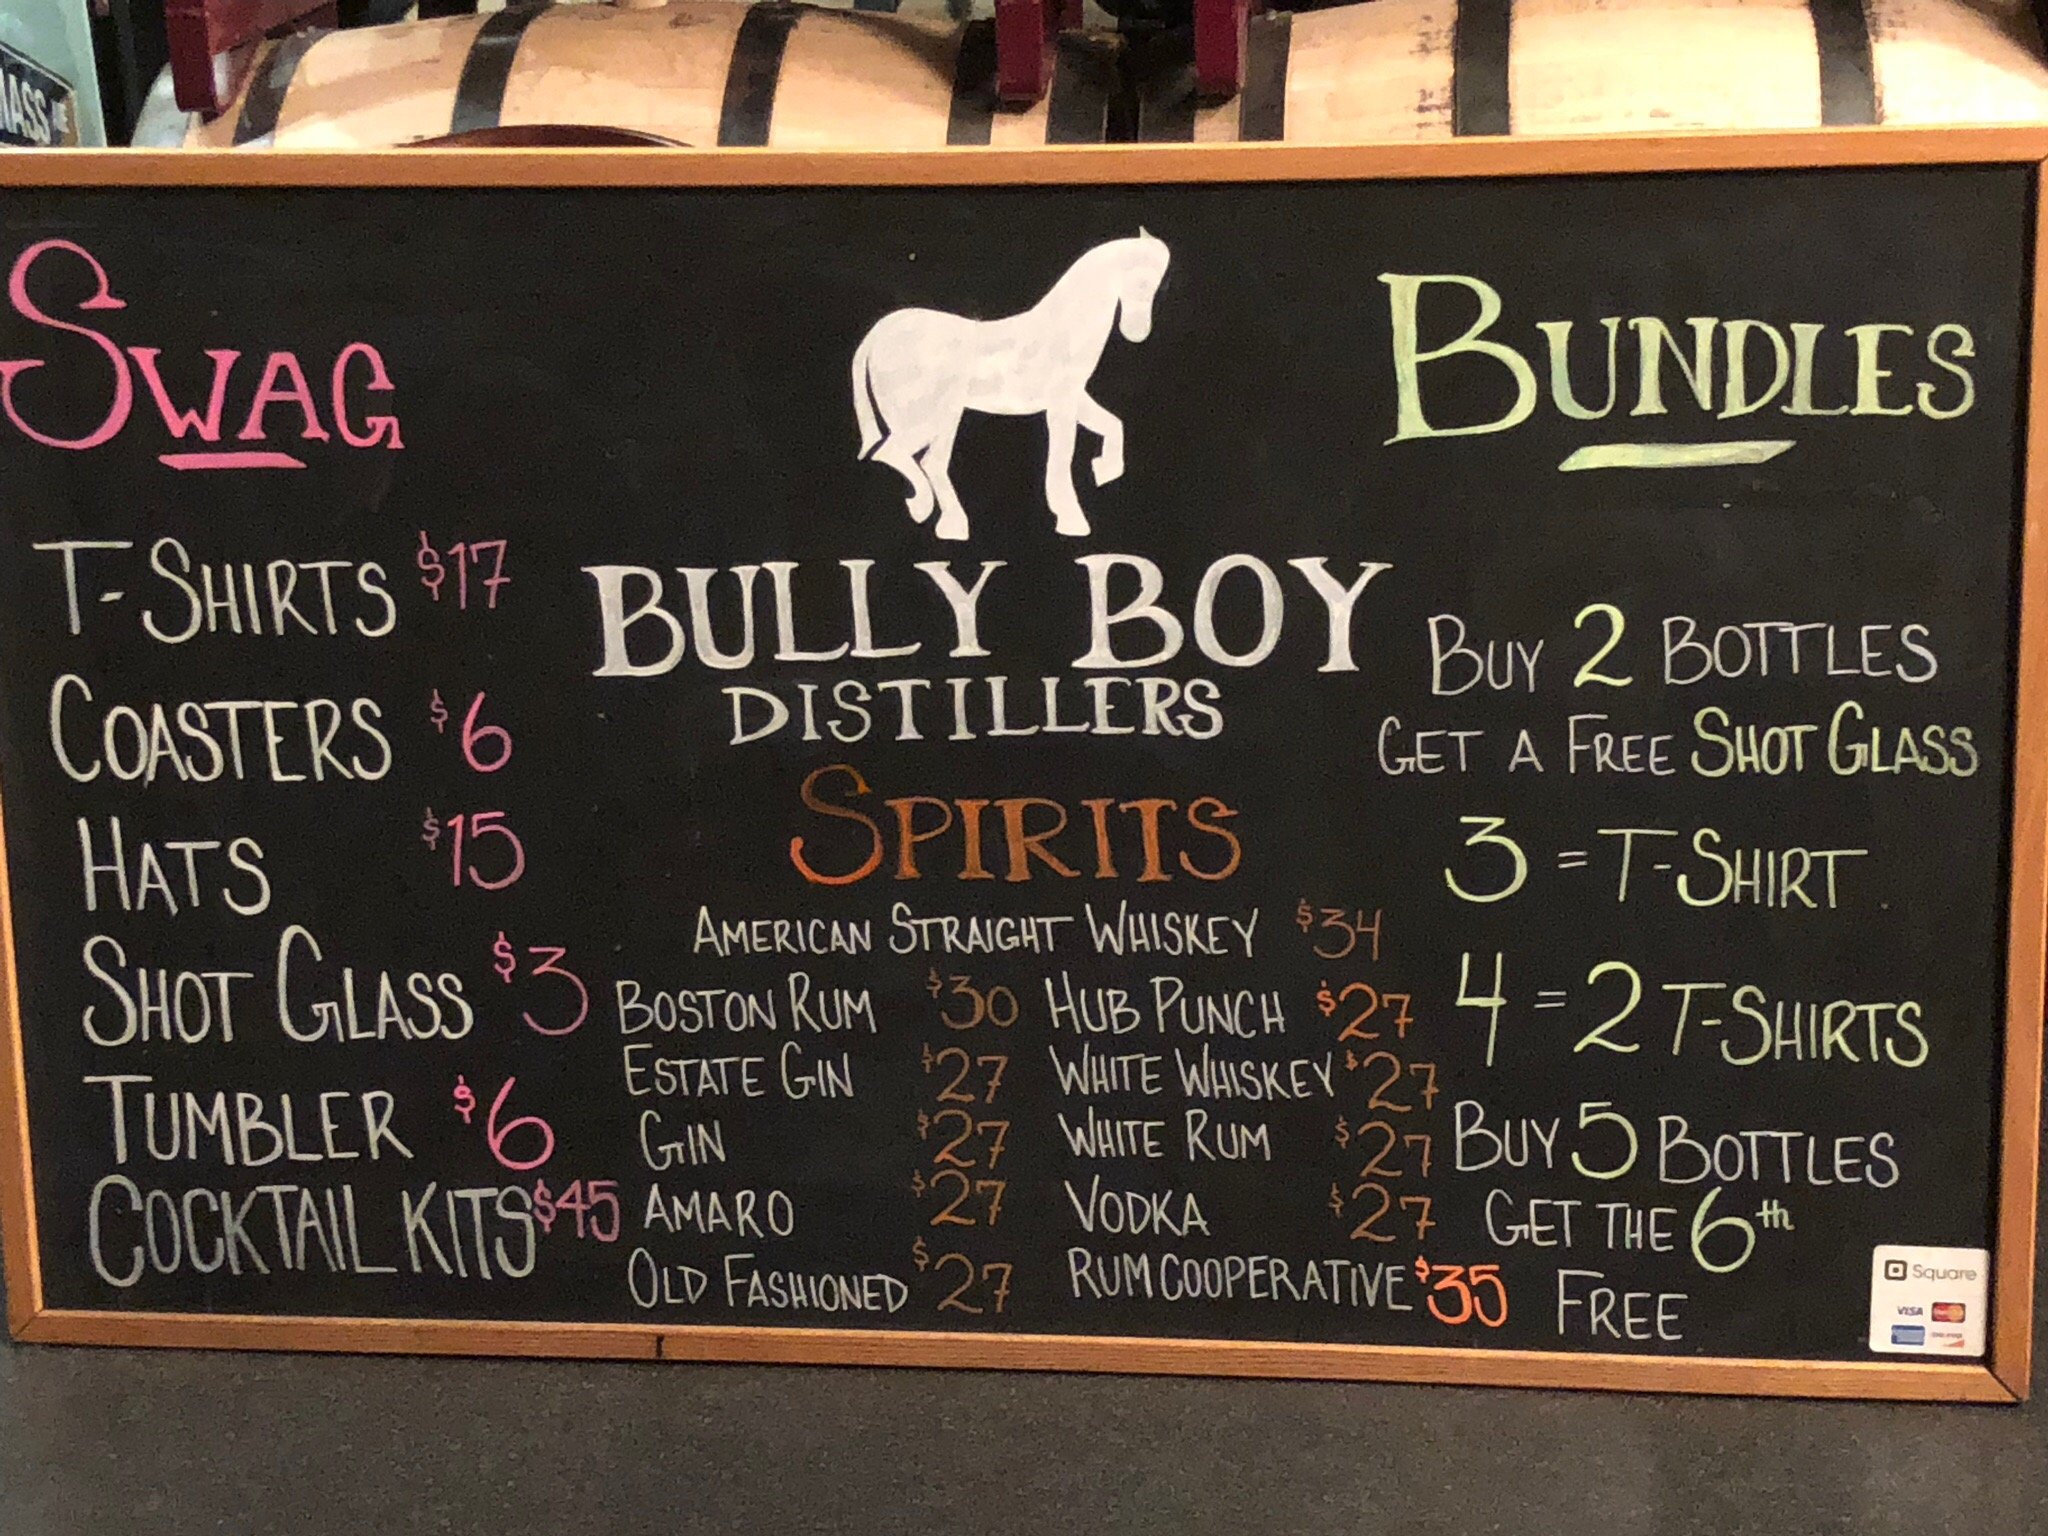 MASS AVE
SWAG
T-SHIRTS $17
COASTERS $6
HATS $15
SHOT GLASS $3
TUMBLER $6
COCKTAIL KITS $45
BULLY BOY
DISTILLERS
SPIRITS
AMERICAN STRAIGHT WHISKEY $34
BOSTON RUM $30
ESTATE GIN $27
GIN $27
AMARO $27
OLD FASHIONED $27
HUB PUNCH $27
WHITE WHISKEY $27
WHITE RUM $27
VODKA $27
RUM COOPERATIVE $35
BUNDLES
BUY 2 BOTTLES
GET A FREE SHOT GLASS
3 = T-SHIRT
4 = 2 T-SHIRTS
BUY 5 BOTTLES
GET THE 6th
FREE
Square
VISA